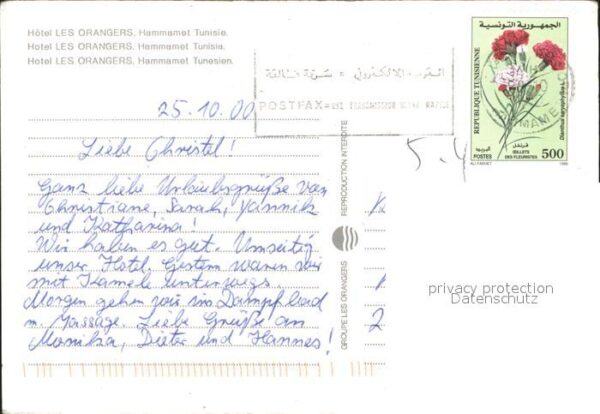 Hôtel LES ORANGERS. Hammamet Tunisie.
Hotel LES ORANGERS. Hammamet Tunisia.
Hotel LES ORANGERS. Hammamet Tunesien.
25.10.00
Liebe Christel!
Ganz liebe Urlaubsgrüße von
Christiane, Sarah, Yannik
und Katharina!
Wir haben es gut. Umseitig
unser Hotel. Gestern waren wir
mit Kamele unterwegs.
Morgen gehen wir ins Dampfbad
m. Massage. Liebe Grüße an
Monika, Dieter und Hannes!
REPRODUCTION INTERDITE
GROUPE LES ORANGERS
البريد الالكتروني = سرعة فائقة
POSTFAX = UNE TRANSMISSION ULTRA RAPIDE
الجمهورية التونسية
REPUBLIQUE TUNISIENNE
Dianthus caryophyllus L.
البريد
قرنفل
POSTES
ŒILLETS
DES FLEURISTES
500
1999
privacy protection
Datenschutz